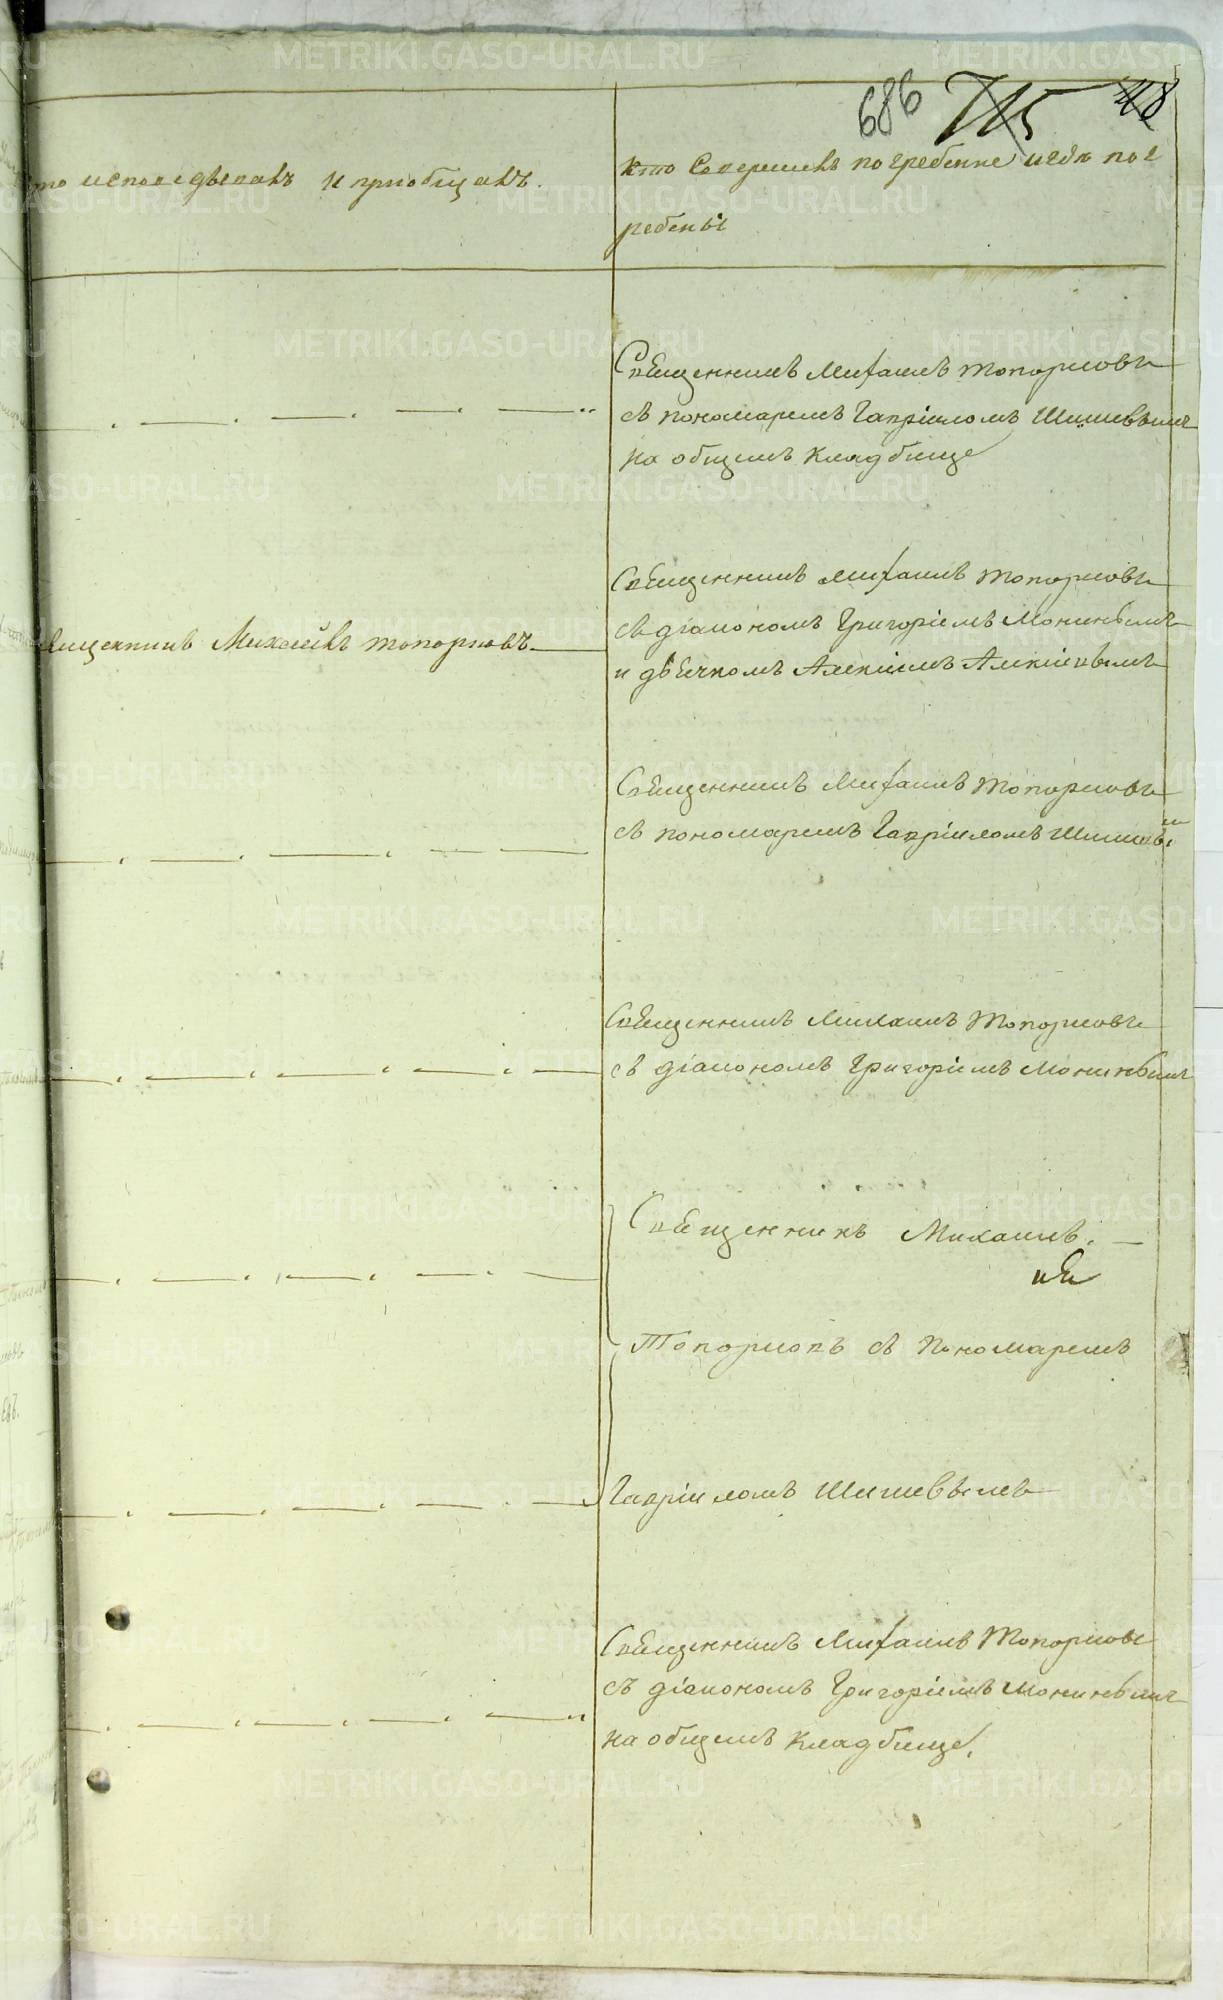 686 715 418
то исповедывалъ и приобщалъ.
кто Совершилъ погребение и гдѣ пог
ребены
Священникъ Михаилъ Топорковъ
съ пономаремъ Гавріиломъ Шишевымъ
на общемъ кладбище
Священникъ Михаилъ Топорковъ
съ діакономъ Григоріемъ Монинымъ
и дьячкомъ Алексіемъ Алексіевымъ
ященникъ Михаилъ Топорковъ
Священникъ Михаилъ Топорковъ
съ пономаремъ Гавріиломъ Шишевы
Священникъ Михаилъ Топорковъ
съ діакономъ Григоріемъ Монинымъ
Священникъ Михаилъ
Топорковъ съ Пономаремъ
Гавріиломъ Шишевымъ
Священникъ Михаилъ Топорковъ
съ діакономъ Григоріемъ Монинымъ
на общемъ кладбище.
METRIKI.GASO-URAL.RU